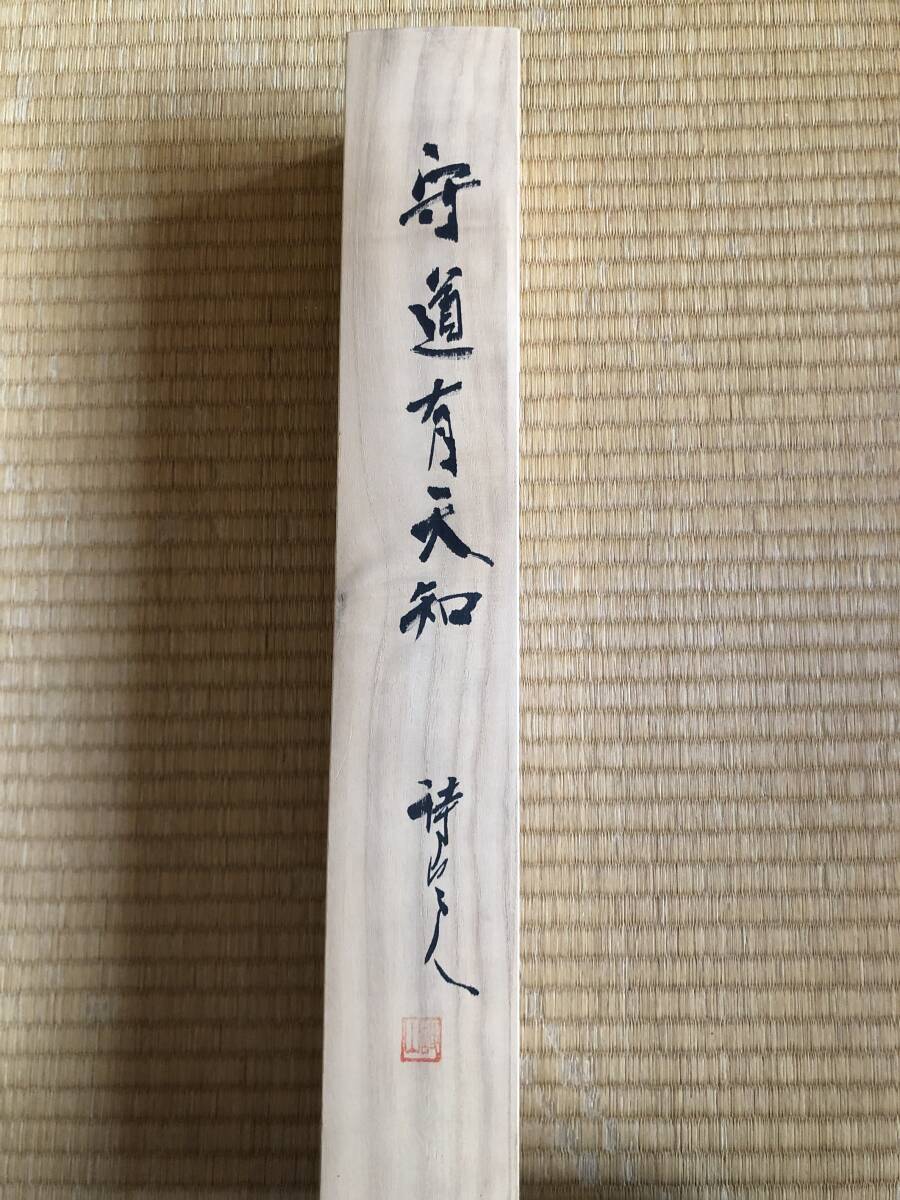 守道有天知
詩山人